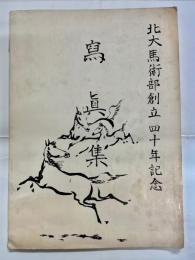 北大馬術部創立四十年記念
寫眞集